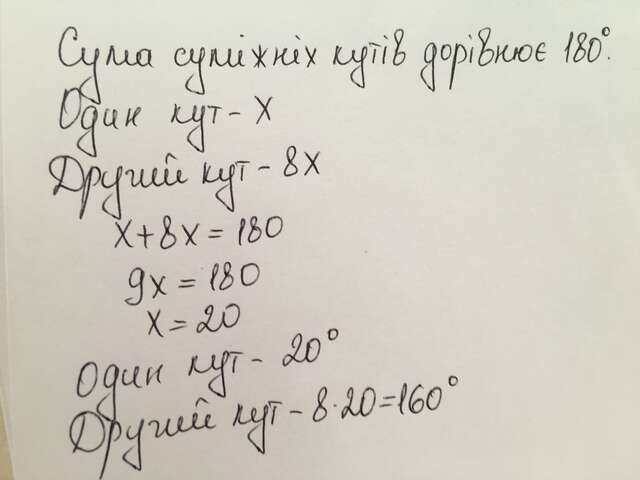 Сума суміжніх кутів дорівнює 180°.
Один кут - х
Другий кут - 8х
х+8х=180
9х=180
х=20
Один кут - 20°
Другий кут - 8·20=160°